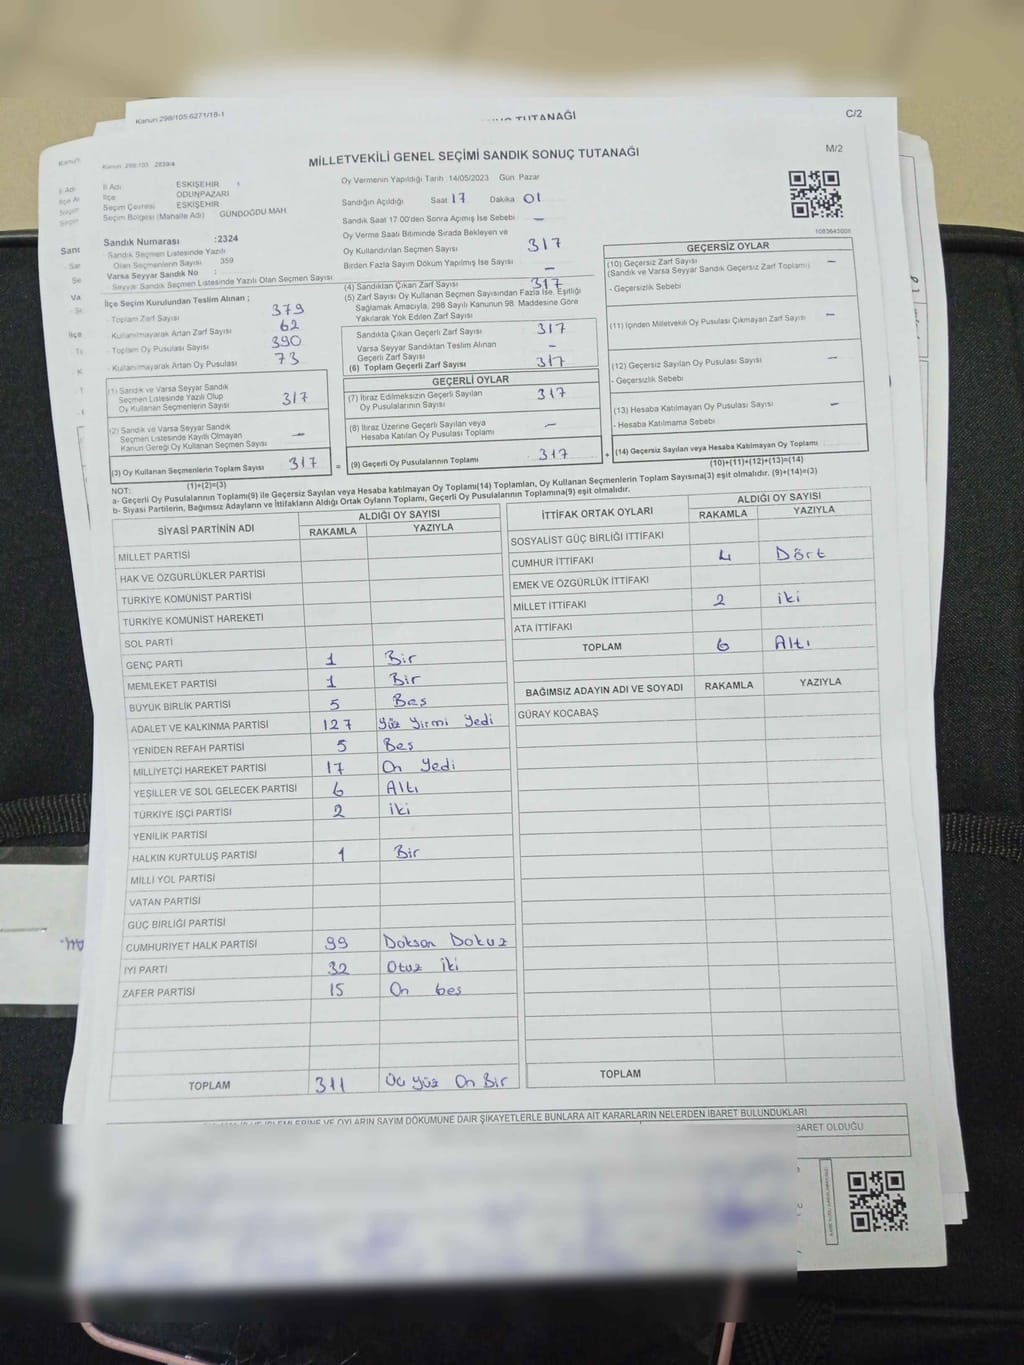 Kanun 298/105 6271/18-1
TUTANAĞI
C/2
Kanun 298/103 2839/4
MİLLETVEKİLİ GENEL SEÇİMİ SANDIK SONUÇ TUTANAĞI
M/2
İl Adı ESKİŞEHİR
İlçe ODUNPAZARI
Seçim Çevresi ESKİŞEHİR
Seçim Bölgesi (Mahalle Adı) GÜNDOĞDU MAH
Sandık Numarası :2324
Sandık Seçmen Listesinde Yazılı
Olan Seçmenlerin Sayısı 359
Varsa Seyyar Sandık No :
Seyyar Sandık Seçmen Listesinde Yazılı Olan Seçmen Sayısı
İlçe Seçim Kurulundan Teslim Alınan ;
- Toplam Zarf Sayısı 379
- Kullanılmayarak Artan Zarf Sayısı 62
- Toplam Oy Pusulası Sayısı 390
- Kullanılmayarak Artan Oy Pusulası 73
(1) Sandık ve Varsa Seyyar Sandık
Seçmen Listesinde Yazılı Olup
Oy Kullanan Seçmenlerin Sayısı 317
(2) Sandık ve Varsa Seyyar Sandık
Seçmen Listesinde Kayıtlı Olmayan
Kanun Gereği Oy Kullanan Seçmen Sayısı —
(3) Oy Kullanan Seçmenlerin Toplam Sayısı 317 =
(1)+(2)=(3)
Oy Vermenin Yapıldığı Tarih 14/05/2023 Gün Pazar
Sandığın Açıldığı Saat 17 Dakika 01
Sandık Saat 17:00'den Sonra Açılmış İse Sebebi —
Oy Verme Saati Bitiminde Sırada Bekleyen ve
Oy Kullandırılan Seçmen Sayısı 317
Birden Fazla Sayım Döküm Yapılmış İse Sayısı —
(4) Sandıktan Çıkan Zarf Sayısı 317
(5) Zarf Sayısı Oy Kullanan Seçmen Sayısından Fazla İse, Eşitliği
Sağlamak Amacıyla, 298 Sayılı Kanunun 98. Maddesine Göre
Yakılarak Yok Edilen Zarf Sayısı
Sandıkta Çıkan Geçerli Zarf Sayısı 317
Varsa Seyyar Sandıktan Teslim Alınan
Geçerli Zarf Sayısı —
(6) Toplam Geçerli Zarf Sayısı 317
GEÇERLİ OYLAR
(7) İtiraz Edilmeksizin Geçerli Sayılan
Oy Pusulalarının Sayısı 317
(8) İtiraz Üzerine Geçerli Sayılan veya
Hesaba Katılan Oy Pusulası Toplamı —
(9) Geçerli Oy Pusulalarının Toplamı 317 +
1083643008
GEÇERSİZ OYLAR
(10) Geçersiz Zarf Sayısı —
(Sandık ve Varsa Seyyar Sandık Geçersiz Zarf Toplamı)
- Geçersizlik Sebebi
(11) İçinden Milletvekili Oy Pusulası Çıkmayan Zarf Sayısı —
(12) Geçersiz Sayılan Oy Pusulası Sayısı —
- Geçersizlik Sebebi
(13) Hesaba Katılmayan Oy Pusulası Sayısı —
- Hesaba Katılmama Sebebi
(14) Geçersiz Sayılan veya Hesaba Katılmayan Oy Toplamı
(10)+(11)+(12)+(13)=(14)
NOT:
a- Geçerli Oy Pusulalarının Toplamı(9) ile Geçersiz Sayılan veya Hesaba katılmayan Oy Toplamı(14) Toplamları, Oy Kullanan Seçmenlerin Toplam Sayısına(3) eşit olmalıdır. (9)+(14)=(3)
b- Siyasi Partilerin, Bağımsız Adayların ve İttifakların Aldığı Ortak Oyların Toplamı, Geçerli Oy Pusulalarının Toplamına(9) eşit olmalıdır.
SİYASİ PARTİNİN ADI ALDIĞI OY SAYISI
RAKAMLA YAZIYLA
MİLLET PARTİSİ
HAK VE ÖZGÜRLÜKLER PARTİSİ
TÜRKİYE KOMÜNİST PARTİSİ
TÜRKİYE KOMÜNİST HAREKETİ
SOL PARTİ
GENÇ PARTİ 1 Bir
MEMLEKET PARTİSİ 1 Bir
BÜYÜK BİRLİK PARTİSİ 5 Beş
ADALET VE KALKINMA PARTİSİ 127 Yüz Yirmi Yedi
YENİDEN REFAH PARTİSİ 5 Beş
MİLLİYETÇİ HAREKET PARTİSİ 17 On Yedi
YEŞİLLER VE SOL GELECEK PARTİSİ 6 Altı
TÜRKİYE İŞÇİ PARTİSİ 2 iki
YENİLİK PARTİSİ
HALKIN KURTULUŞ PARTİSİ 1 Bir
MİLLİ YOL PARTİSİ
VATAN PARTİSİ
GÜÇ BİRLİĞİ PARTİSİ
CUMHURİYET HALK PARTİSİ 99 Doksan Dokuz
İYİ PARTİ 32 Otuz iki
ZAFER PARTİSİ 15 On beş
TOPLAM 311 Üç Yüz On Bir
İTTİFAK ORTAK OYLARI ALDIĞI OY SAYISI
RAKAMLA YAZIYLA
SOSYALİST GÜÇ BİRLİĞİ İTTİFAKI
CUMHUR İTTİFAKI 4 Dört
EMEK VE ÖZGÜRLÜK İTTİFAKI
MİLLET İTTİFAKI 2 iki
ATA İTTİFAKI
TOPLAM 6 Altı
BAĞIMSIZ ADAYIN ADI VE SOYADI RAKAMLA YAZIYLA
GÜRAY KOCABAŞ
TOPLAM
OYLARIN SAYIM DÖKÜMÜNE DAİR ŞİKAYETLERLE BUNLARA AİT KARARLARIN NELERDEN İBARET BULUNDUKLARI
BARET OLDUĞU